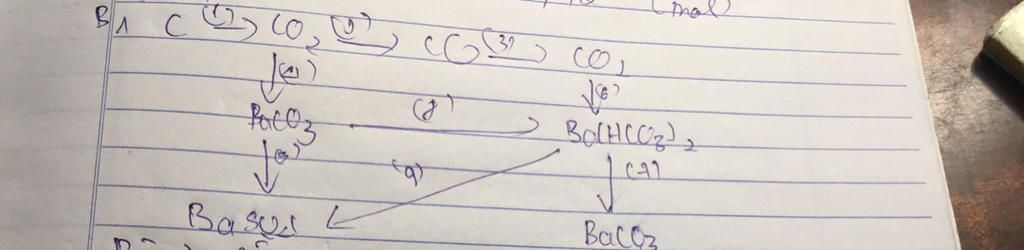 (mol)
B1 C (1) CO2 (2) CO (3) CO2
(4) (6)
BaCO3 (8) Ba(HCO3)2
(5) (9) (7)
BaSO4 BaCO3